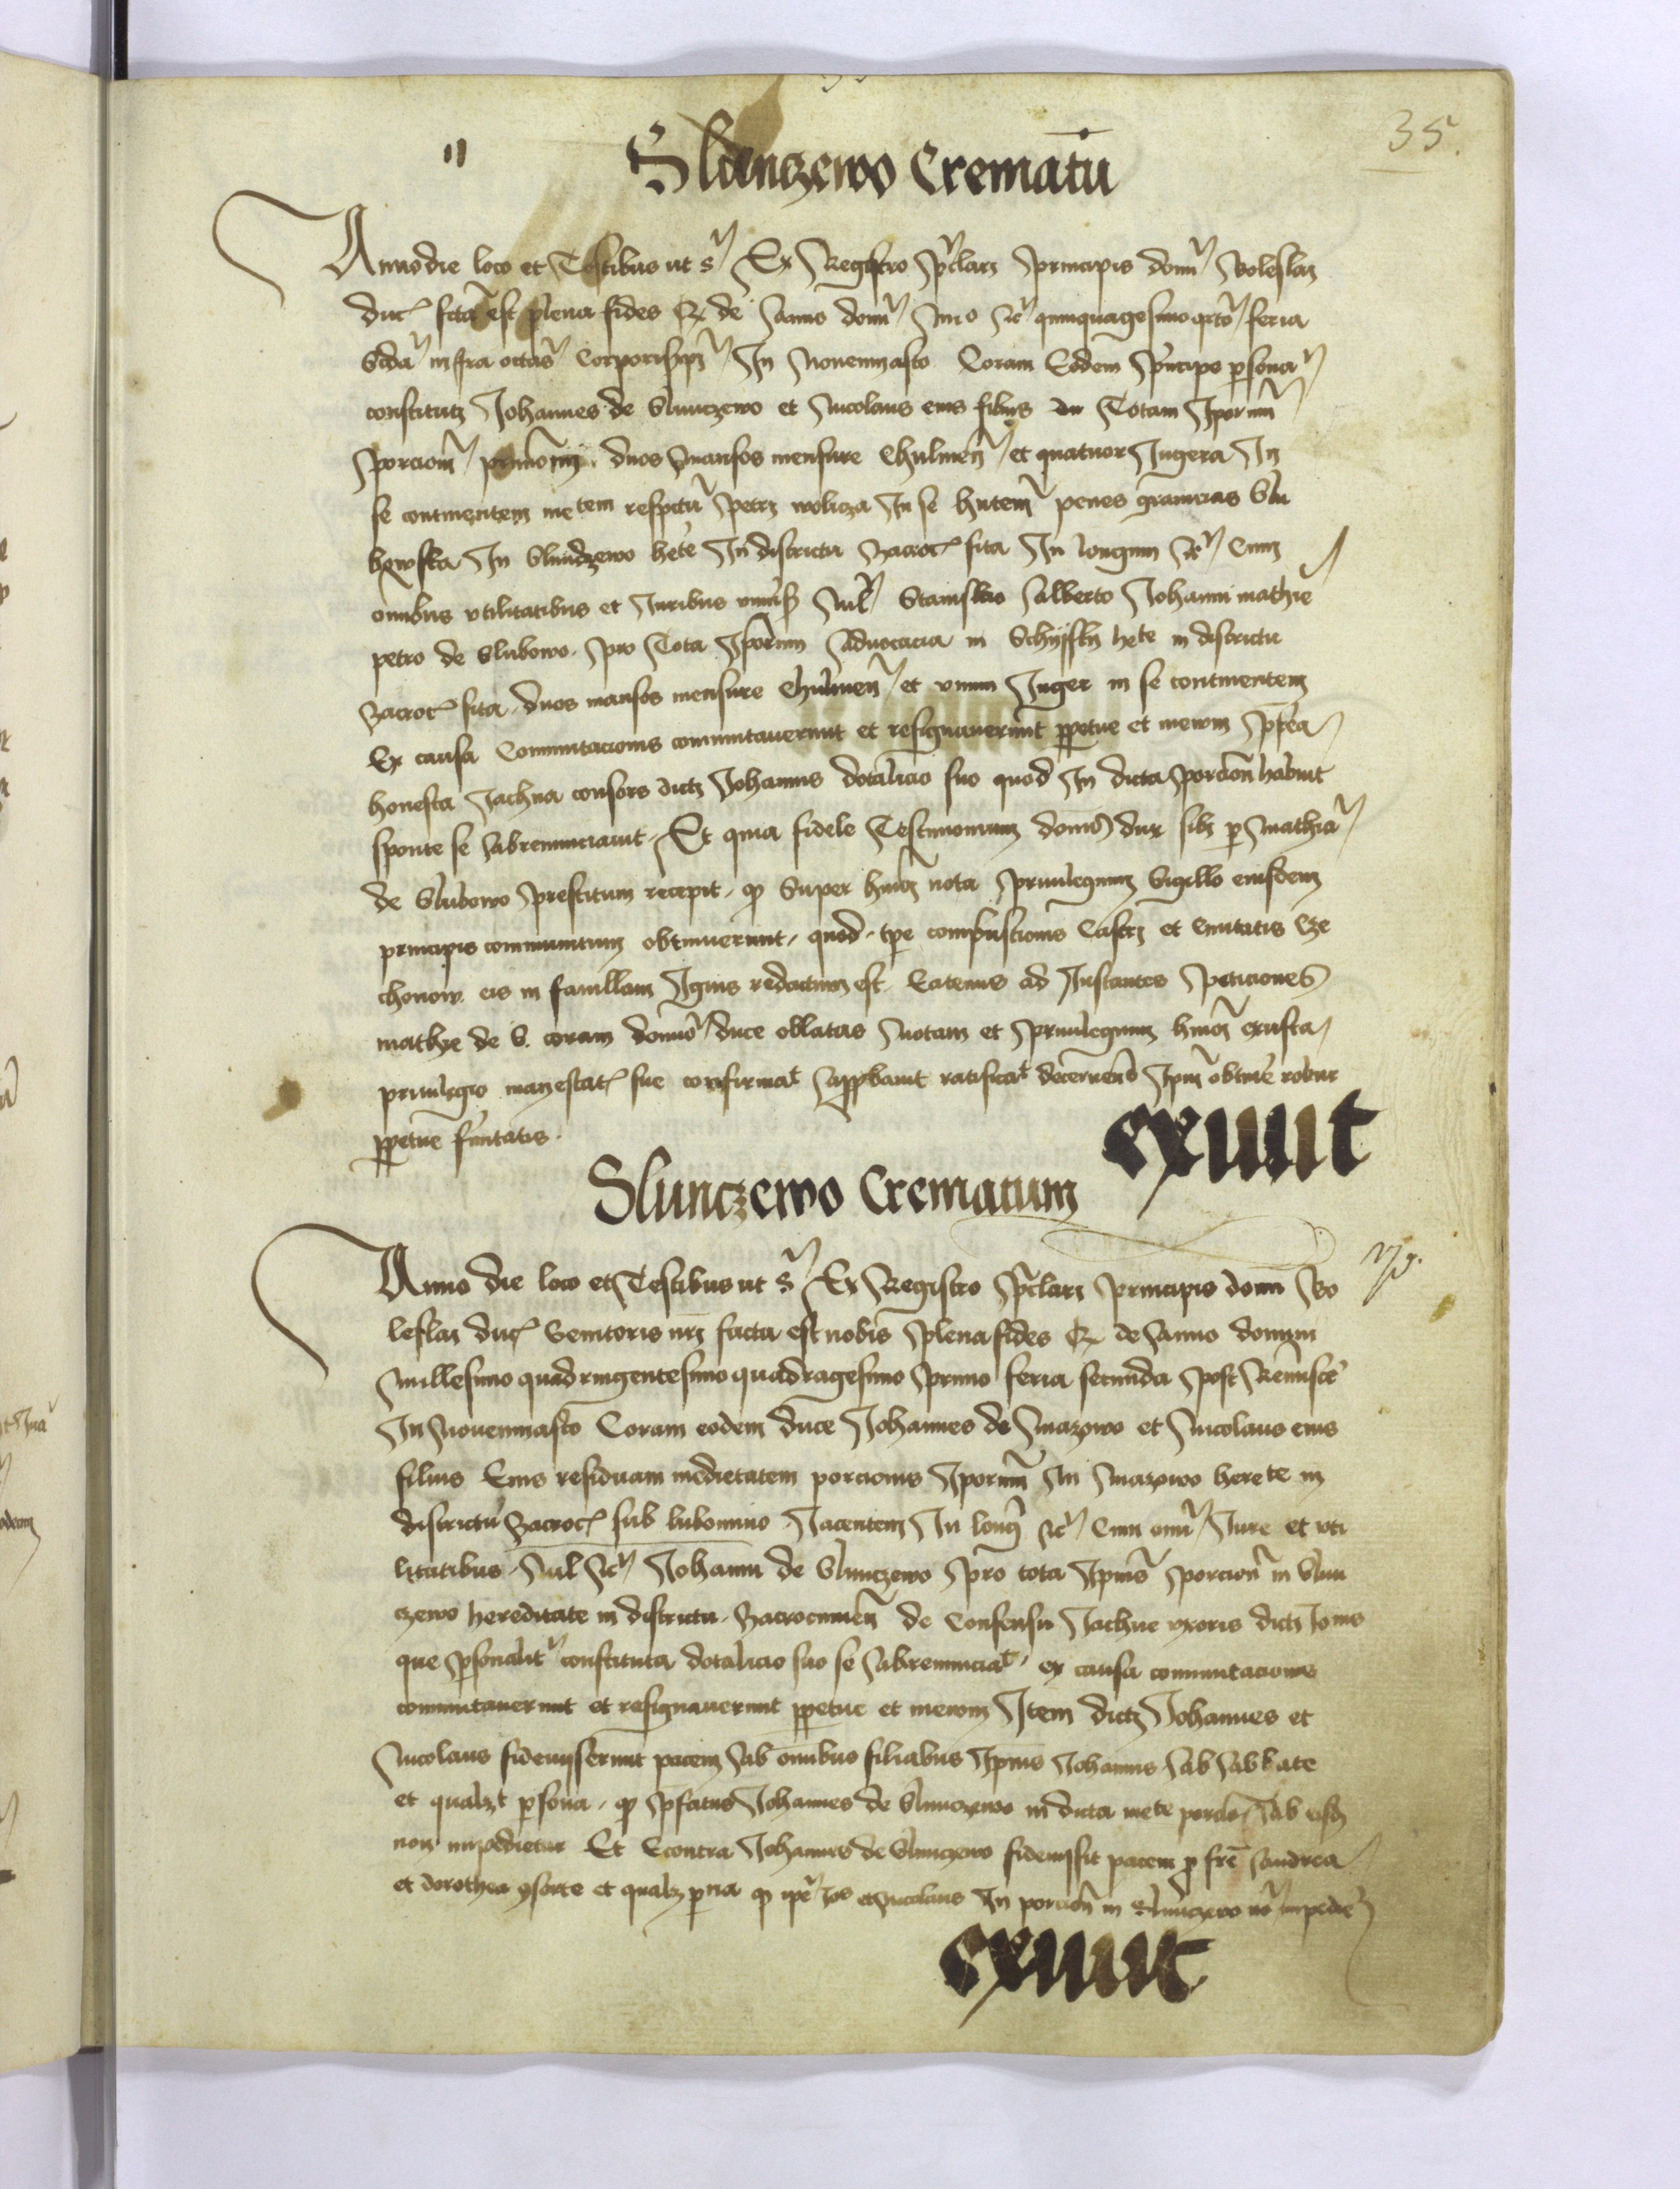 35.
Slunczewo Crematu
Anno die loco et Testibus ut s Ex Registro pclari principis domi Boleslai
duc fcta est plena fides Q de Anno domi Mo &c quinquagesimo qrto feria
scda infra octas Corporis xpi In Novemiasto Coram Eodem principe persona
constituti Johannes de Slunczewo et Nicolaus eius filius Totam Ipoum
porciom duos Mansos mensure Chulmen et quatuor Iugera In
se continentem respctu petri In se hntem penes granicias Slu
bowska In Slunczewo hete In districtu Zacroc sita In longum &c Cum
omibus vtilitatibus et Juribus Nil Stanislao Alberto Johanni mathie
petro de Slubowo pro Tota Iporum Advocacia in hete in districtu
Zacroc sita duos mansos mensure Chulmen et vnum Juger in se continentem
Ex causa Commutacionis commutauerunt et resignauerunt ppetue et in ewm pptea
honesta Jachna consors dicti Johannis dotalicio suo quod In dicta porcion habuit
sponte se abrenunciauit Et quia fidele Testimonium domis dux sibi p Mathia
de Slubowo prestitum recepit q Super hmoi nota priuilegium Sigillo eiusdem
principis communitum obtinuerunt quod tpe combustionis Castri et Ciuitatis Cze
chonow eis in fauillam Ignis redactum est Eatenus ad Instantes peticiones
mathie de S. coram domio duce oblatas Notam et priuilegium hmoi exusta
priuilegio maiestat sue confirmat Approbauit ratificat decernend Ipm obtine robur
ppetue firmitatis
exiuit
Slunczewo Crematum
Anno die loco et Testibus ut s Ex Registro pclari principis domi Bo
leslai duc Genitoris nri facta est nobis plena fides Q de Anno domini
Millesimo quadringentesimo quadragesimo primo feria secunda post Reminisce
In Novemiasto Coram eodem duce Johannes de Mazowo et Nicolaus eius
filius Eius residuam medietatem porcionis Iporum In Mazowo herete in
districtu Zacroc sub lubomino Jacentem In long &c Cum omi Jure et vti
litatibus Nil &c Johanni de Slunczewo pro tota Ipius porcion in Slun
czewo hereditate in districtu Zacrocimien de Consensu Jachne vxoris dicti Jonis
que psonalit constituta dotalicio suo se Abrenunciat ex causa commutacionis
commutauerunt et resignauerunt ppetue et in ewm Item dicti Johannes et
Nicolaus fideiusserunt pacem Ab omibus filiabus Ipius Johannis Ab
et qualzt psona q pfatus Johannes de Slunczewo in dicta porcio Ab eisd
non impedietur Et Econtra Johannes de Slunczewo fideiussit pacem p fre Andrea
et dorothea gsorte et qualz pna q ipe Jos et Nicolaus In porcion in Slunczewo no impedie
exiuit